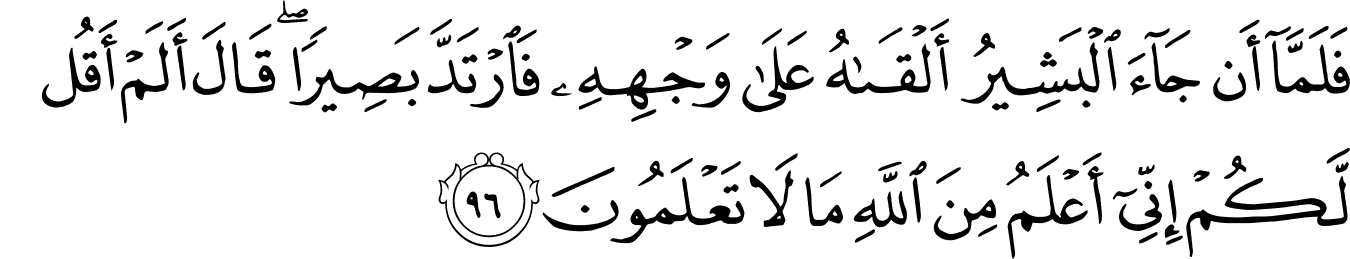 فَلَمَّآ أَن جَآءَ ٱلْبَشِيرُ أَلْقَىٰهُ عَلَىٰ وَجْهِهِۦ فَٱرْتَدَّ بَصِيرًا ۖ قَالَ أَلَمْ أَقُل
لَّكُمْ إِنِّىٓ أَعْلَمُ مِنَ ٱللَّهِ مَا لَا تَعْلَمُونَ ٩٦